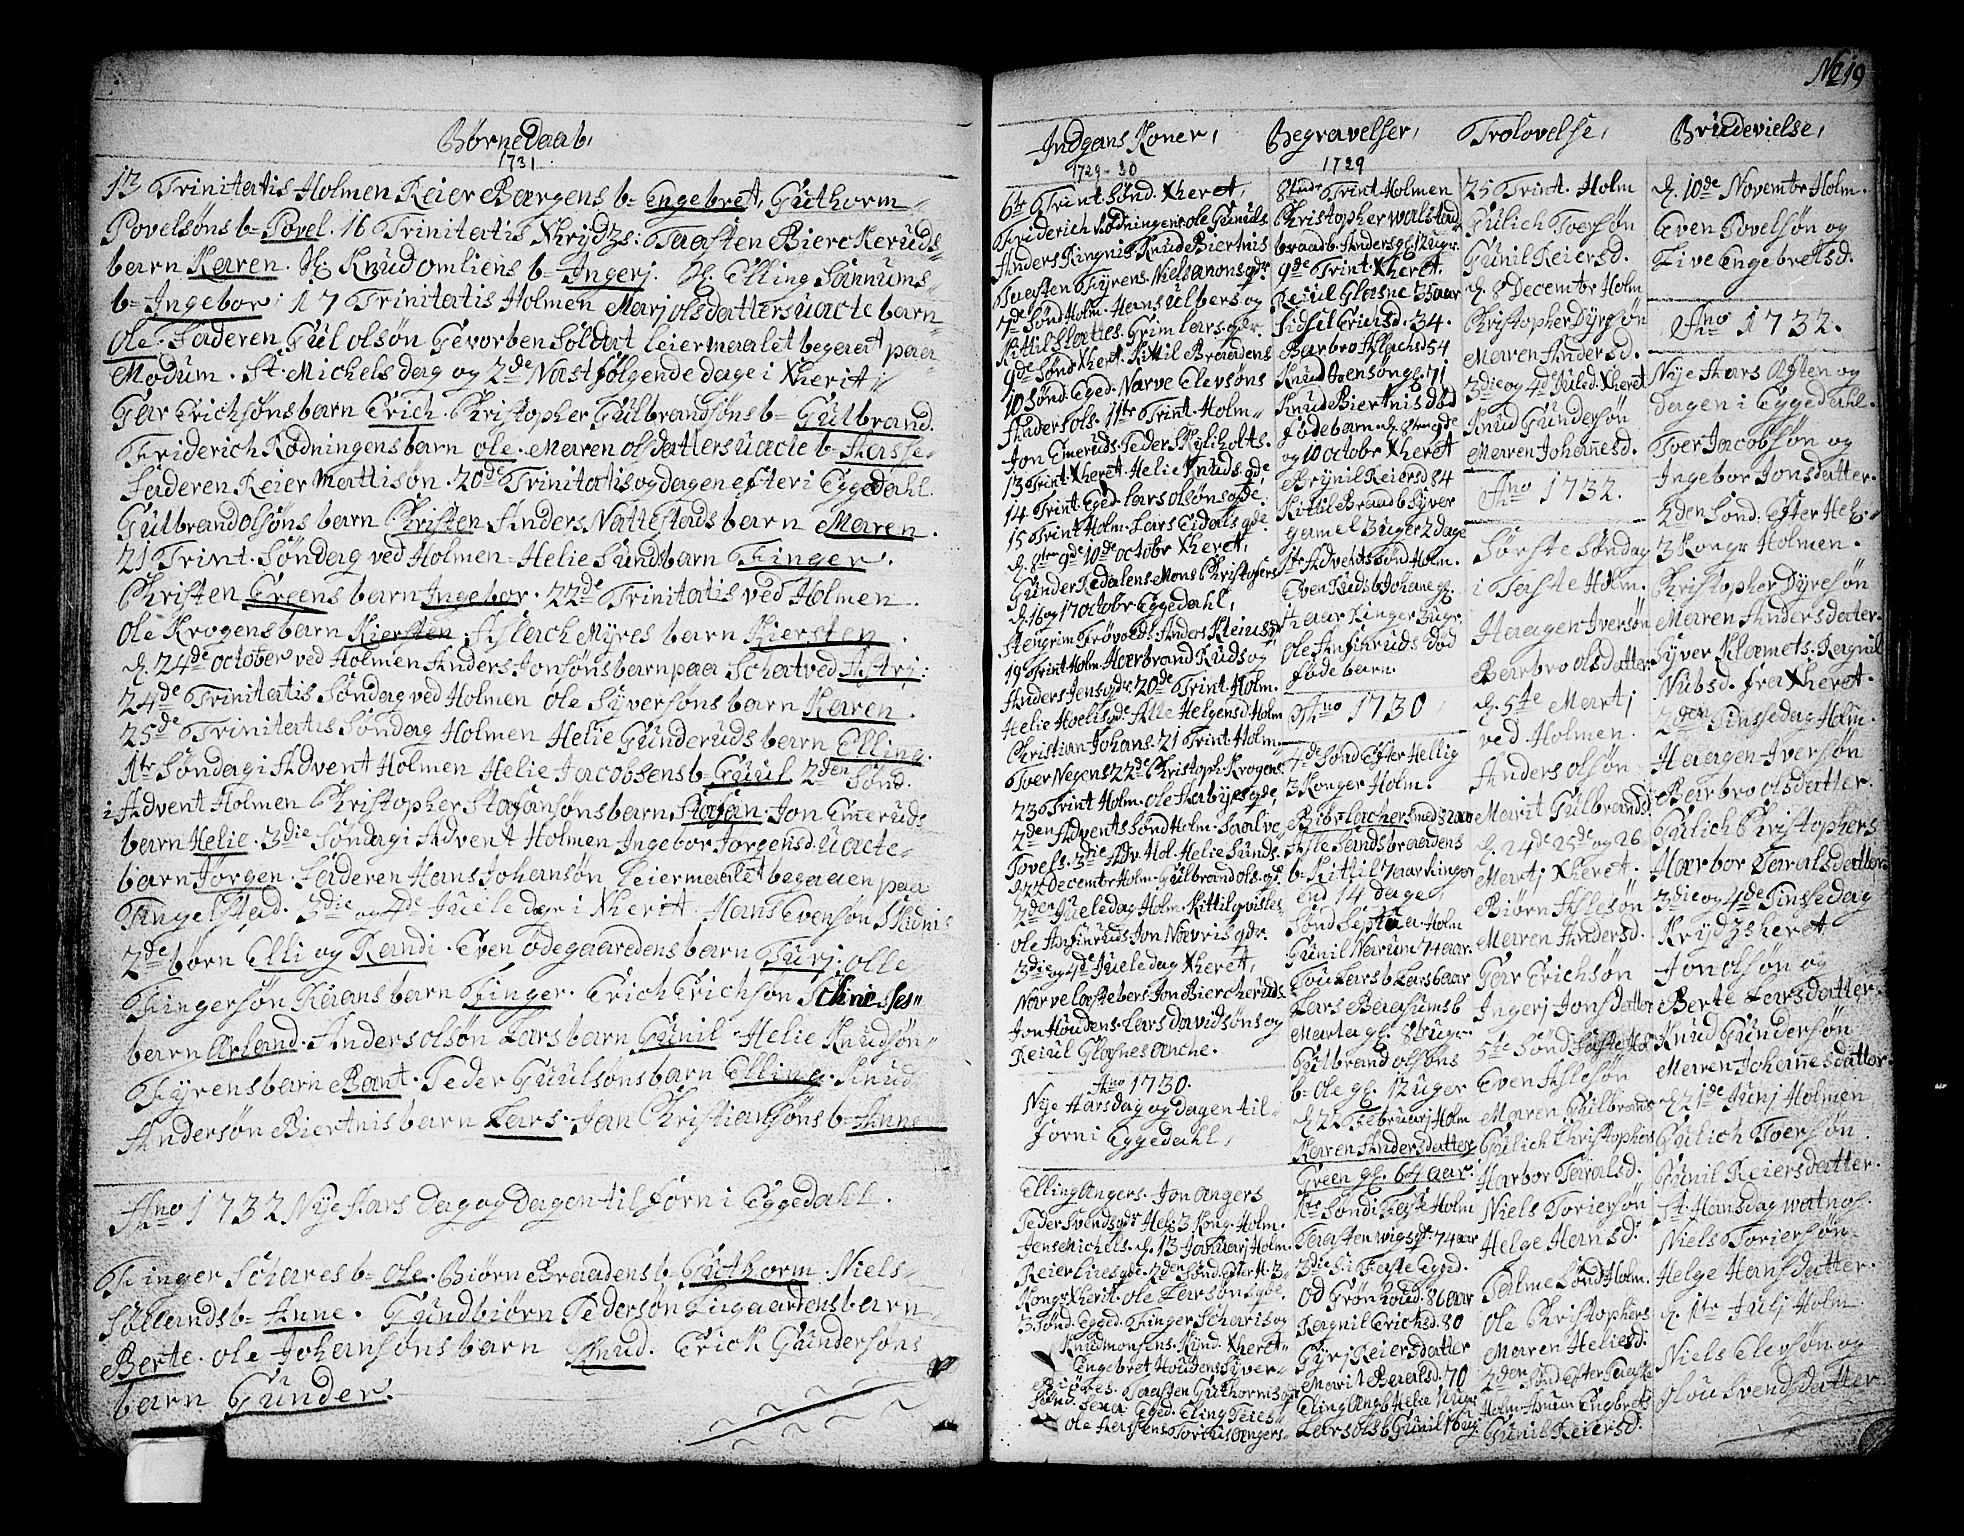 No 19
Børnedaab,
1731
13 Trinitatis Holmen Reier Bergens b= Engebret, Guthorm
Povelsøns b= Povel. 16 Trinitatis Xkrydzs: Taasten Bierckeruds
barn Karen. It. Knud omliens b= Ingerj. It. Elling Sannums
b= Ingebor: 17 Trinitatis Holmen Marj olsdatters uæcte barn
Ole. Faderen Gul olsøn Gevorben Soldat leiermaalet begaaet paa
Modum. St. Michels dag og 2de Næst følgende dage i Xherit
Gar Erichsøns barn Erich. Christopher Gulbrandsøns b= Gulbrand.
Friderich Rødningens barn ole. Maren olsdatters uæcte b= Aasse
Faderen Reier Mattisøn. 20de Trinitatis og dagen efter i Eggedahl.
Gulbrand olsøns barn Christen Anders Nattestads barn Maren.
21 Trint. Søndag ved Holmen Helie Sunds barn Finger.
Christen Green's barn Ingebor. 22de Trinitatis ved Holmen
Ole Krogens barn Kiersten. Aslach Myres barn Kiersten
d. 24de october ved Holmen Anders Jonsøns barn paa Schatved Astri:
24de Trinitatis Søndag ved Holmen Ole Syversøns barn Karen.
25de Trinitatis Søndag Holmen Helie Gunderuds barn Elling.
1te Søndag i Advent Holmen Helie Jacobsens b= Guul 2den Sønd.
i Advent Holmen Christopher Stafansøns barn Stafan. Jon Emeruds
barn Helie. 3die Søndag i Advent Holmen Ingebor Jørgensd. uæcte
barn Jørgen. Faderen Hans Johansøn Leiermaalet begaaen paa
Fingelstad. 3die og 4de Jueledag i Xherit Hans Evensøn Skadnis
2de børn Elli og Randi. Even ødegaardens barn Turj. olle
Fingersøn Raans barn Finger. Erich Erichsøn
barn Erland. Anders olsøn Lars barn Gunil Helie Knudsøn
Fyrens barn Bent. Peder Guulsøns barn Elling. Knud
Andersøn Biertnis barn Lars. Jan Christiansøns b= Anne
Ano 1732 Nye Aars dag og dagen tilforn i Eggedahl.
Finger Schares b= Ole. Biørn Braadens b= Guthorm Niels
Søelands b= Anne. Gundbiørn Pedersøn Fingaardens barn
Berte. ole Johansøns barn Knud. Erick Gundersøns
barn Gunder.
Indgans Koner,
1729-30
6te Trint. Sønd. Xheret,
Friderich Rødningens ole Gunuls
Anders Ringnis Knud Biertnis
Taasten Fyrens, Niels gdr
7de Sønd Holm. Hans ulbers og
Kittil Slattes. Grim Lars gdr.
9de Sønd Xheret. Kittil Braadens
10 Sønd. Eged. Narve Elevsøns
Anders ols. 11te Trint. Holm
Jon Emeruds. Peder Kyliholts.
13 Trint. Xheret. Helie Knuds gde
14 Trint. Eged. Lars olsøns gde.
15 Trint Holm. Lars Eidals gde
d. 8te 9de 10de octobr Xheret,
Gunder Medalens Mons Christophers
d. 16 og 17 octobr Eggedahl,
Stengrim Trøvolds Anders Kleius gdr
19 Trint Holm. Harbrand Ruds og
Anders Jens gdr 20de Trint. Holm.
Helie Hoelis gde Alle Helgensd. Holm
Christian Johans. 21 Trint Holm.
Toer Negens 22de Christoph. Krogens
23 Trint Holm. ole Aabyes gde
2den Advents Sønd Holm. Saalve
Povels. 3die Adv. Hol. Helie Sunds.
d. 22 Decembr Holm. Gulbrand ols. gl.
2den Jueledag Holm. Kittil qvisles
Ole Anfinruds Jon Nøvris gdr.
3die og 4de Jueledag Xheret,
Narve Jon Biercheruds
Jon Houdens. Lars Davidsøns og
Reiul Glasnes anche.
Ano 1730.
Nye Aarsdag og dagen til-
forn i Eggedahl,
Elling Angers. Jon Angers
Peder Svends gdr Hel: 3 Kong. Holm.
Jens Michels. d. 13 Januarj Holm.
Reier Lires gde. 2den Sønd. efter H. 3
Kongr Xherit. ole Larsøns gde,
3 Sønd. Egged. Finger Scharis og
Knud monsens. Kynd. Xheret
Engebret Houdens Syver
Taasten Guthorms gdr
Sønd. Eged. Eling Teies
Ole Torkus angers
Begravelser,
1729
8tende Trint Holmen
Christopher walstad
braad b. Anders gl. 12 ugr.
9de Trint. Xheret.
Reiul Glasne 35 aar
Sidsel Erichsd. 34.
Barbro Aslachsd 54
Knud Evenson gl. 71
Knud Biertnis død
fødebarn d. 8ten 9de
og 10 octobr Xheret
Brynil Reiersd 84
Kittil Braad b Syver
gamel 3 uger 2 dage
1te Advents Sønd Holm.
Even Ruds b Johane gl.
½ aar Ringer 3 ugr.
Ole Anfinruds død
føde barn.
Ano 1730,
7de Sønd Efter Hellig
3 Konger Holm.
Asle Sandsbraadens
b- Kittil 7 aar Ringer
end 14 dage,
Sønd Septua- Holm
Gunil Narum 74 aar.
Tou Lars b Lars 6 aar
Lars Berasums b
Marta gl. 8 ugr.
Gulbrand olsøns
b- ole gl. 12 uger
d. 22 Februarj Holm
Karen Andersdatter
Green gl. 64 aar.
1te Sønd i Faste Holm
Taasten wigs gde 74 aar
3die S. i Faste Egged.
Od Grønhoud. 86 aar
Ragnil Erichsd. 80
Gurj Reiersdatter
Marit Baralsd. 70
Eling Angs b Helie 12 ugr
Lars ols b Gunil 16 ug
Trolovelse,
25 Trint. Holm
Gulich Toersøn
Gunil Reiersd.
d. 8 Decembr Holm
Christopher Dyresøn
Maren Andersd.
3die og 4de Juled. Xheret
Knud Gundersøn
Maren Johanesd.
Ano 1732.
Første Søndag
i Faste Holm.
Haagen Iversøn
Barbro olsdatter
d. 5te Martj
ved Holmen.
Anders olsøn
Marit Gulbrandsd
d. 24de 25de og 26
Martj Xheret.
Biørn Aslesøn
Maren Andersd.
Gar Erichsøn
Ingerj Jonsdatter
5te Sønd Faste Hol
Even Aslesøn
Maren Gulbrands
Gulich Christophers
Harbor Taralsd.
Niels Toriersøn
Helge Hansd:
Palme Sønd Holm.
Ole Christophers
Maren Heliesd:
2den Sønd Efter Paaske
Holm. Amun Engbrets
Gunil Reiersd.
Brudevielse,
d. 10de Novembr Holm.
Even Povelsøn og
Live Engebretsd.
Ano 1732.
Nye Aars Aften og
dagen i Eggedahl.
Toer Jacobsøn og
Ingebor Jonsdatter.
2den Sønd. Efter Hel.
3 Kongr Holmen.
Christopher Dyresøn
Maren Andersdatter.
Syver Klamets. Ragnil
Nubsd. fra Xheret.
2den Pinssedag Holm.
Haagen Iversøn
Barbro olsdatter.
Gulich Christophers
Harbor Taralsdatter
3die og 4de Pinssedag
Krydzsheret
Jon olsøn og
Berte Larsdatter.
Knud Gundersøn
Maren Johannesdatter
d. 21de Junj Holmen
Gulich Toersøn
Gunil Reiersdatter.
St. Hansdag watnos
Niels Toriersøn
Helge Hansdatter.
d. 1te Julj Holm
Niels Elevsøn og
Svendsdatter